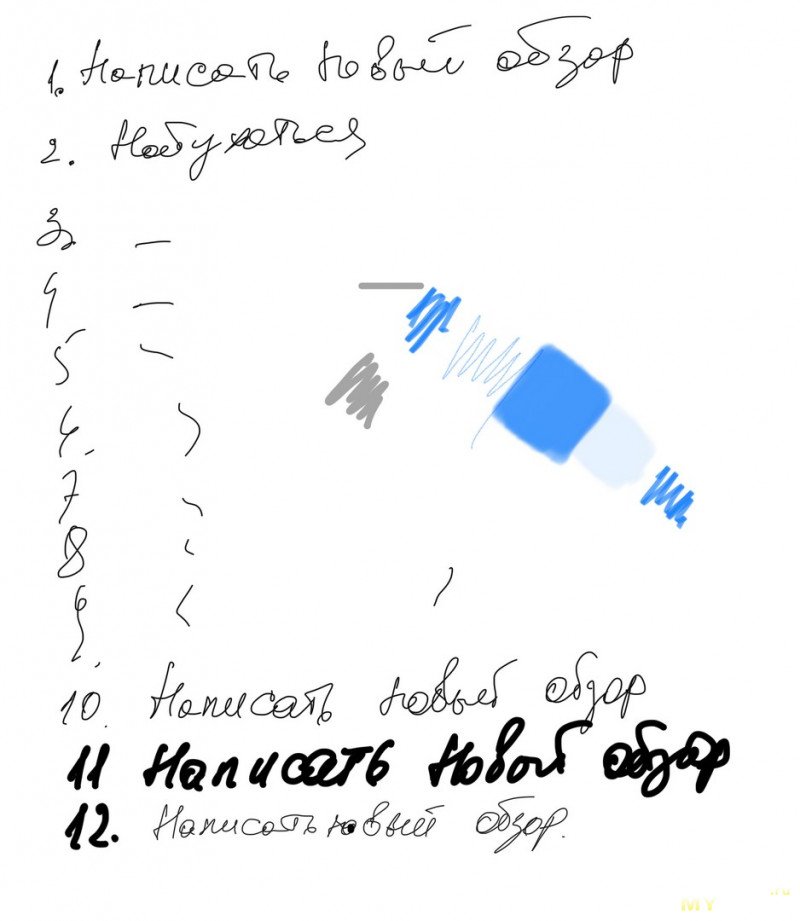 1. Написать новый обзор
2. Набухаться
3 —
4 —
5 -
6.
7
8
9.
10. Написать новый обзор
11 Написать новой обзор
12. Написать новый обзор.
MY .ru